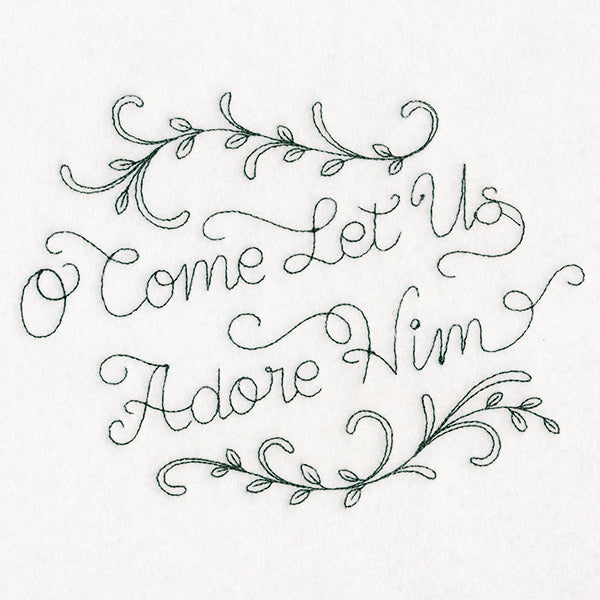 O Come Let Us
Adore Him